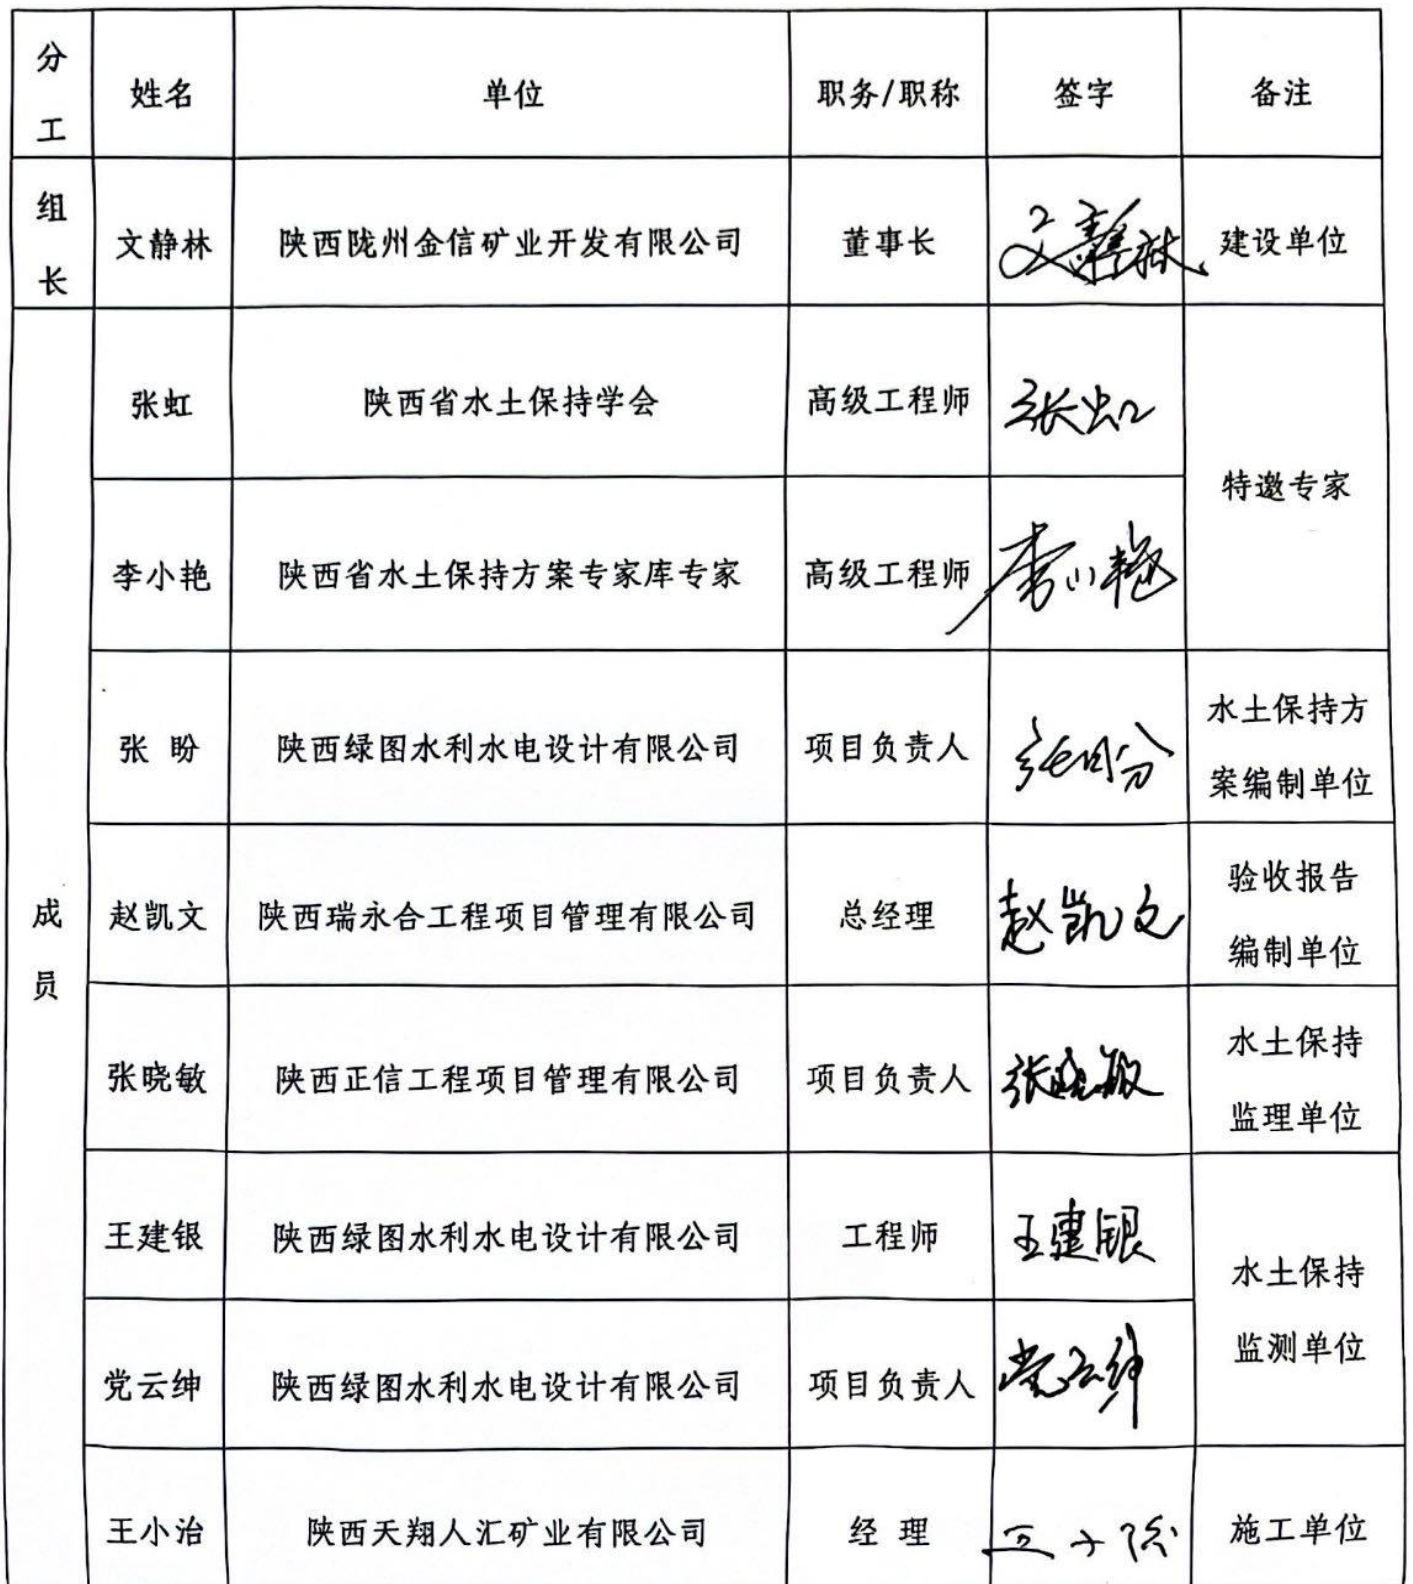 分
工
姓名 单位 职务/职称 签字 备注
组
长
文静林 陕西陇州金信矿业开发有限公司 董事长 文静林 建设单位
张虹 陕西省水土保持学会 高级工程师 张虹
特邀专家
李小艳 陕西省水土保持方案专家库专家 高级工程师 李小艳
张 盼 陕西绿图水利水电设计有限公司 项目负责人 张盼
水土保持方
案编制单位
成
员
赵凯文 陕西瑞永合工程项目管理有限公司 总经理 赵凯文
验收报告
编制单位
张晓敏 陕西正信工程项目管理有限公司 项目负责人 张晓敏
水土保持
监理单位
王建银 陕西绿图水利水电设计有限公司 工程师 王建银
水土保持
监测单位
党云绅 陕西绿图水利水电设计有限公司 项目负责人 党云绅
王小治 陕西天翔人汇矿业有限公司 经 理 施工单位